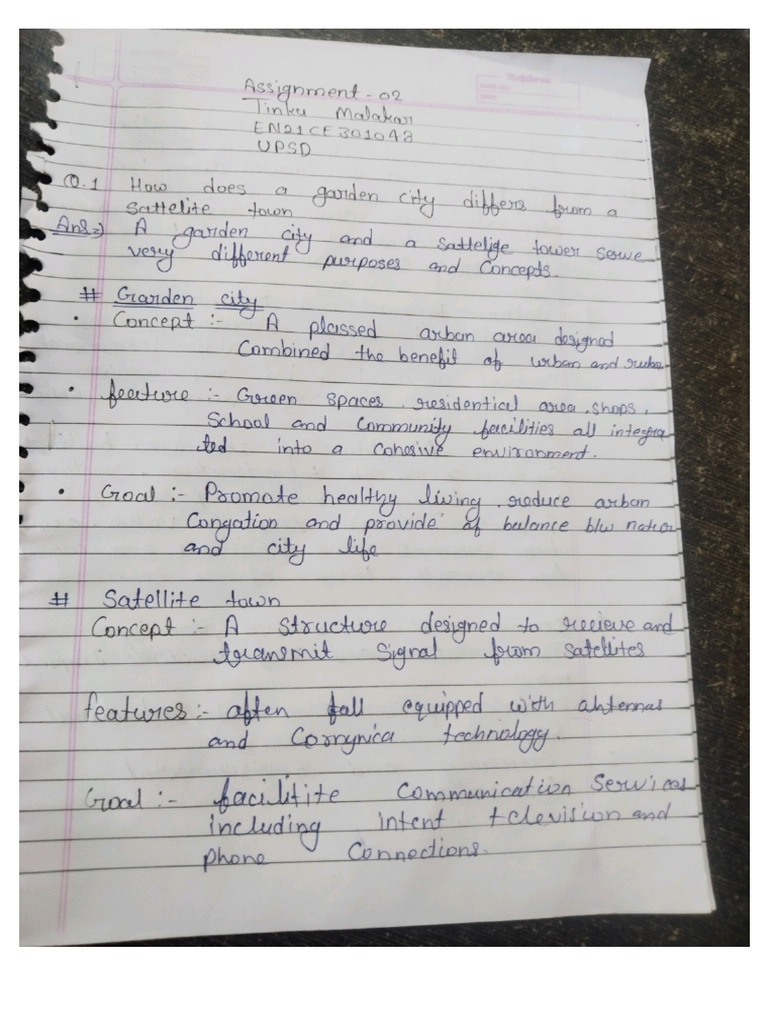 Assignment - 02
Tinku Malakar
EN21CE301048
UPSD
Q.1 How does a garden city differs from a
Sattelite town
Ans:-) A garden city and a Sattelige tower serve
very different purposes and Concepts.
# Garden city
• Concept :- A plassed arban area designed
Combined the benefit of urban and
• feature :- Green spaces, residential area, shops,
School and Community facilities all integra
ted into a Cohosive environment.
• Goal :- Promote healthy living, reduce arban
Congation and provide of balance b/w
and city life
# Satellite town
Concept :- A Structure designed to recieve and
transmit Signal from Satellites
features :- often fall equipped with antennas
and technology.
Goal :- facilitite Communication Services
including intent television and
phone Connections.